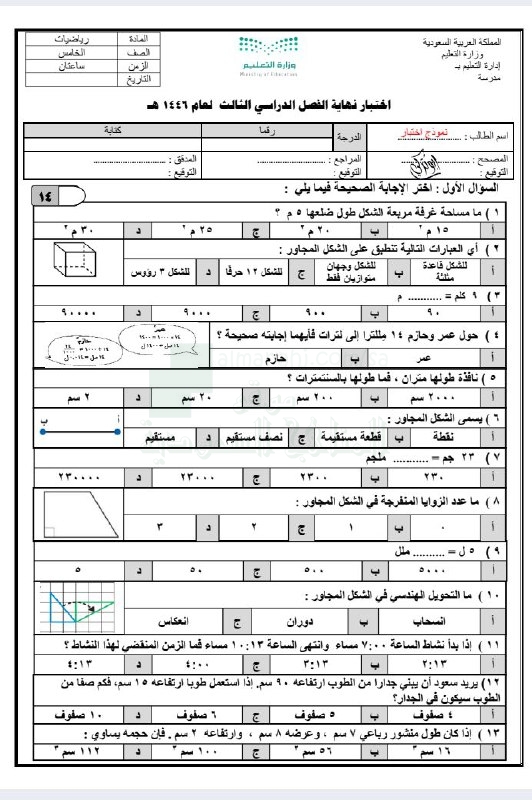 المملكة العربية السعودية
وزارة التعليم
إدارة التعليم بـ
مدرسة
وزارة التعليم
Ministry of Education
المادة رياضيات
الصف الخامس
الزمن ساعتان
التاريخ
اختبار نهاية الفصل الدراسي الثالث لعام ١٤٤٦ هـ
اسم الطالب : نموذج اختبار
الدرجة رقما كتابة
المصحح : المراجع : المدقق :
التوقيع : التوقيع : التوقيع :
السؤال الأول : اختر الإجابة الصحيحة فيما يلي :
١٤
١ ) ما مساحة غرفة مربعة الشكل طول ضلعها ٥ م ؟
أ ١٥ م ٢ ب ٢٠ م ٢ ج ٢٥ م ٢ د ٣٠ م ٢
٢ ) أي العبارات التالية تنطبق على الشكل المجاور :
أ للشكل قاعدة مثلثة ب للشكل وجهان متوازيان فقط ج للشكل ١٢ حرفًا د للشكل ٣ رؤوس
٣ ) ٩ كلم = ........... م
أ ٩٠ ب ٩٠٠ ج ٩٠٠٠ د ٩٠٠٠٠
٤ ) حول عمر وحازم ١٤ مللترا إلى لترات فأيهما إجابته صحيحة ؟
أ عمر ب حازم
عمر
حازم
٥ ) نافذة طولها متران ، فما طولها بالسنتمترات ؟
أ ٢٠٠٠ سم ب ٢٠٠ سم ج ٢٠ سم د ٢ سم
٦ ) يسمى الشكل المجاور :
أ نقطة ب قطعة مستقيمة ج نصف مستقيم د مستقيم
أ ب
٧ ) ٢٣ جم = ........... ملجم
أ ٢٣٠ ب ٢٣٠٠ ج ٢٣٠٠٠ د ٢٣٠٠٠٠
٨ ) ما عدد الزوايا المنفرجة في الشكل المجاور :
أ ٠ ب ١ ج ٢ د ٣
٩ ) ٥ ل = .......... ملل
أ ٥٠٠٠ ب ٥٠٠ ج ٥٠ د ٥
١٠ ) ما التحويل الهندسي في الشكل المجاور :
أ انسحاب ب دوران ج انعكاس
١١ ) إذا بدأ نشاط الساعة ٧:٠٠ مساء وانتهى الساعة ١٠:١٣ مساء فما الزمن المنقضي لهذا النشاط ؟
أ ٢:١٣ ب ٣:١٣ ج ٤:٠٠ د ٤:١٣
١٢) يريد سعود أن يبني جدارا من الطوب ارتفاعه ٩٠ سم. إذا استعمل طوبا ارتفاعه ١٥ سم، فكم صفا من
الطوب سيكون في الجدار؟
أ ٤ صفوف ب ٥ صفوف ج ٦ صفوف د ١٠ صفوف
١٣ ) إذا كان طول منشور رباعي ٧ سم ، وعرضه ٨ سم ، وارتفاعه ٢ سم . فإن حجمه يساوي :
أ ١٦ سم ٣ ب ٥٦ سم ٣ ج ١٠٠ سم ٣ د ١١٢ سم ٣